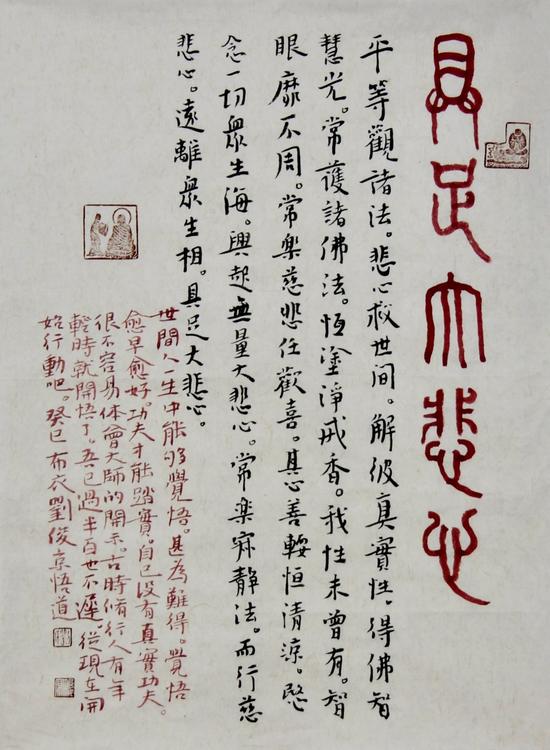 具足大悲心
平等觀諸法。悲心救世间。解彼真實性。得佛智
慧光。常護諸佛法。恆塗淨戒香。我性未曾有。智
眼靡不周。常樂慈悲任歡喜。其心善輭恒清涼。愍
念一切眾生海。興起無量大悲心。常樂寂靜法。而行慈
悲心。遠離眾生相。具足大悲心。
世間人一生中能够覺悟。甚為難得。覺悟
愈早愈好。功夫才能踏實。自己没有真實功夫。
很不容易体會大師的開示。古時脩行人有年
輕時就開悟了。吾已過半百也不遲。從現在開
始行動吧。癸巳布衣劉俊京悟道